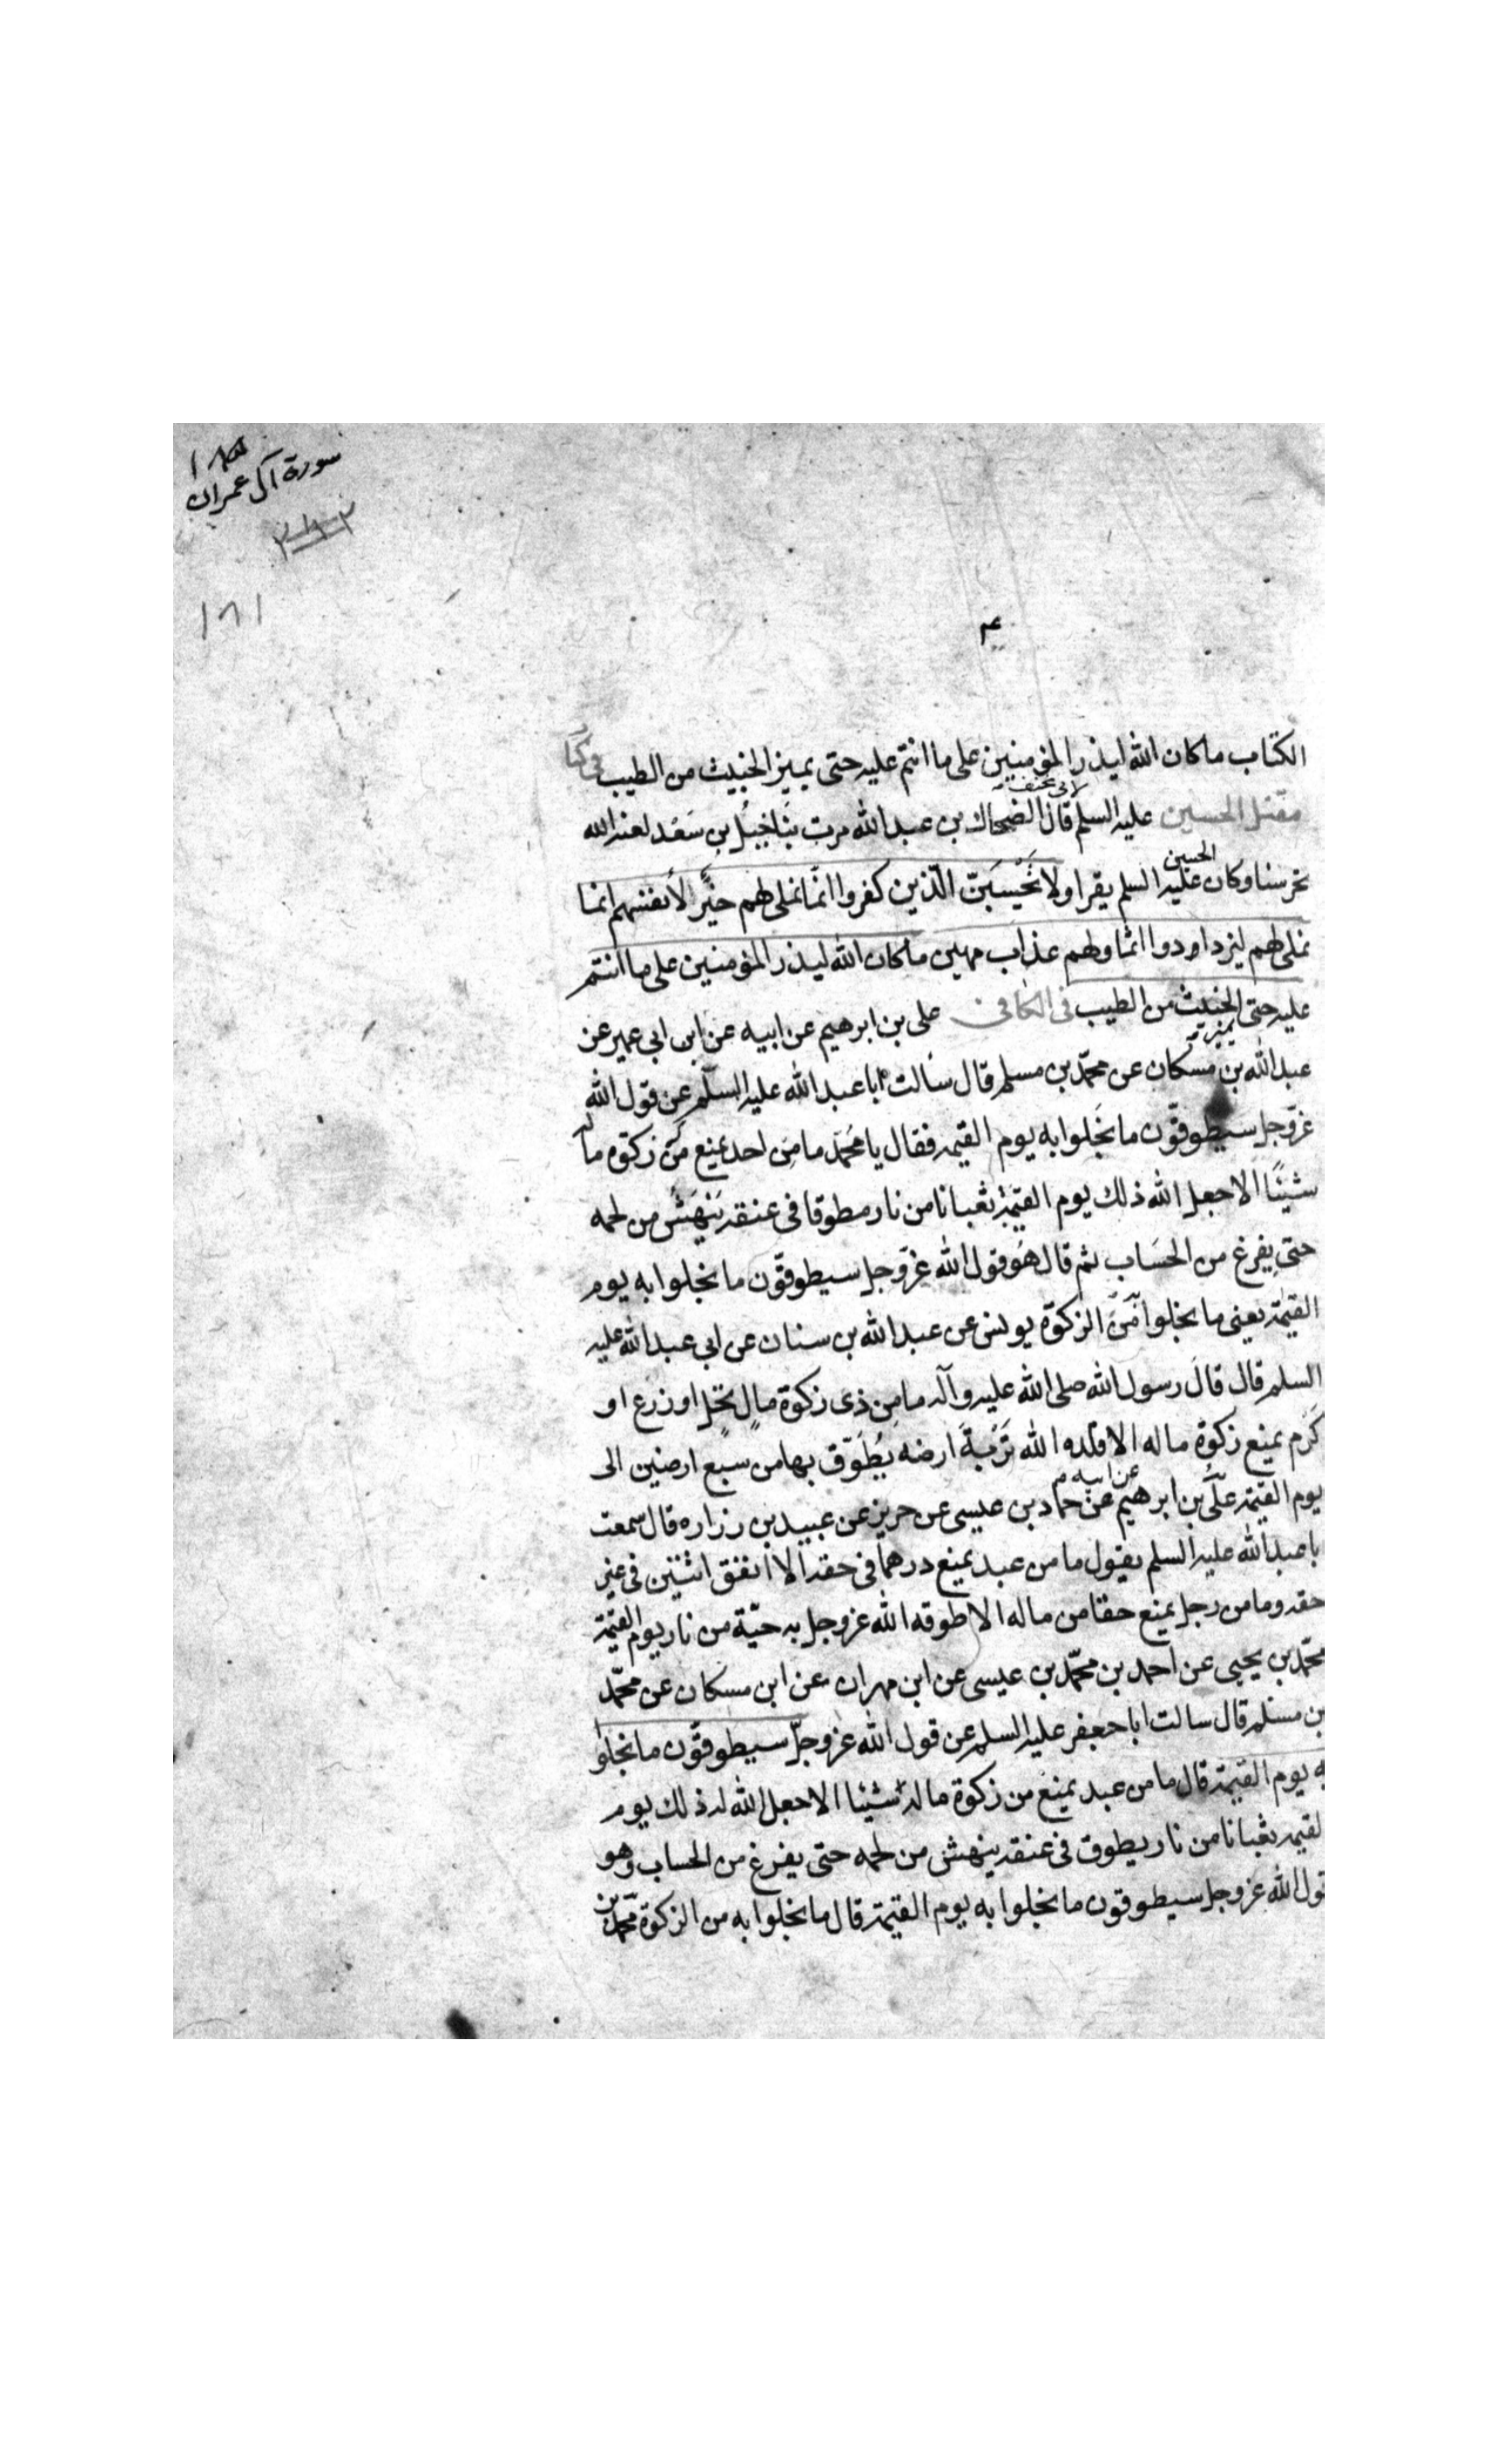 سورة آل عمران
١٨١
الكتاب ماكان الله ليذر المؤمنين على ما انتم عليه حتى يميز الخبيث من الطيب في كتاب
لابى مخنف
مقتل الحسين عليه السلم قال الضحاك بن عبد الله مرت بنا خيل بن سعد لعنه الله
الحسين
تحرسنا وكان عليه السلم يقرا ولا تَحْسَبَنّ الّذين كفروا انّما نملى لهم خيرٌ لأنفسهم انما
نملى لهم ليزدادوا اثما ولهم عذاب مهين ماكان الله ليذر المؤمنين على ما انتم
عليه حتى الخبيث من الطيب فى الكافى على بن ابرهيم عن ابيه عن ابن ابى عمير عن
يميز
عبد الله بن مسكان عن محمّد بن مسلم قال سالت ابا عبد الله عليه السلم عن قول الله
عزّ وجل سيطوقّون ما بخلوا به يوم القيمه فقال يا محمّد ما من احد يمنع من زكوة ماله
شيئًا الا جعل الله ذلك يوم القيمة ثعبانا من نار مطوقا فى عنقه يَنْهَشُ من لحمه
حتى يفرغ من الحساب ثم قال هو قول الله عزّ وجل سيطوقّون ما بخلوا به يوم
القيمة يعنى ما بخلوا من الزكوة يونس عن عبد الله بن سنان عن ابى عبد الله عليه
السلم قال قال رسول الله صلى الله عليه وآله ما من ذى زكوة مالٍ نخلٍ او زرع او
كَرم يمنع زكوة ماله الا قلده الله تُرْبَةَ ارضه يُطَوّق بها من سبع ارضين الى
عن ابيه م
يوم القيمة علىّ بن ابرهيم عن حماد بن عيسى عن حريز عن عبيد بن زراره قال سمعت
ابا عبد الله عليه السلم يقول ما من عبد يمنع درهما فى حقه الا انفق اثنين فى غير
حقه وما من رجل يمنع حقا من ماله الا طوقه الله عز وجل به حيّة من نار يوم القيمة
محمّد بن يحيى عن احمد بن محمّد بن عيسى عن ابن مهران عن ابن مسكان عن محمّد
بن مسلم قال سالت ابا جعفر عليه السلم عن قول الله عز وجلّ سيطوقّون ما بخلوا
به يوم القيمة قال ما من عبد يمنع من زكوة ماله شيئا الا جعل الله له ذلك يوم
القيمة ثعبانا من نار يطوق فى عنقه ينهش من لحمه حتى يفرغ من الحساب وهو
قول الله عز وجل سيطوقون ما بخلوا به يوم القيمة قال ما بخلوا به من الزكوة محمّد بن